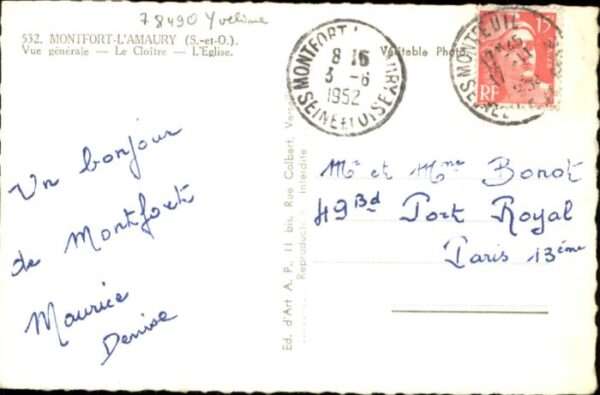 78490 Yvelines
532. MONTFORT-L'AMAURY (S.-et-O.)
Vue générale — Le Cloître — L'Eglise.
Véritable Photo
MONTFORT
8 16
3 -6
1952
SEINE ET OISE
MONTREUIL
SEINE
15
RF
Un bonjour
de Montfort
Maurice
Denise
Ed. d'Art A. P., 11 bis, Rue Colbert,
Interdite
Mr et Mme Bonot
49 Bd Port Royal
Paris 13ème